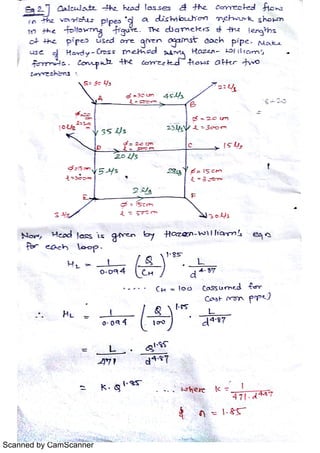 Eg 2.] Calculate the head losses & the corrected flows
in the various pipes of a distribution network shown
in the following figure. The diameters & the lengths
of the pipes used are given against each pipe. Make
use of Hardy-Cross method using Hazen-William's
formula. Compute the corrected flows after two
corrections :
A
B
ø=30 cm
l = 300m
35 l/s
ø = 20 cm
15 l/s
D
C
20 l/s
5 l/s
ø = 15 cm
2 l/s
E
F
ø = 15cm
Now, Head loss is given by Hazen-William's eqn
for each loop.
HL = 1/0.094 (Q/CH)^1.85 · L/d^4.87
..... CH = 100 (assumed for
Cast iron pipe)
∴ HL = 1/0.094 (Q/100)^1.85 · L/d^4.87
= L/471 · Q^1.85/d^4.87
= K. Q^1.85 .... where K =
& n = 1.85
Scanned by CamScanner